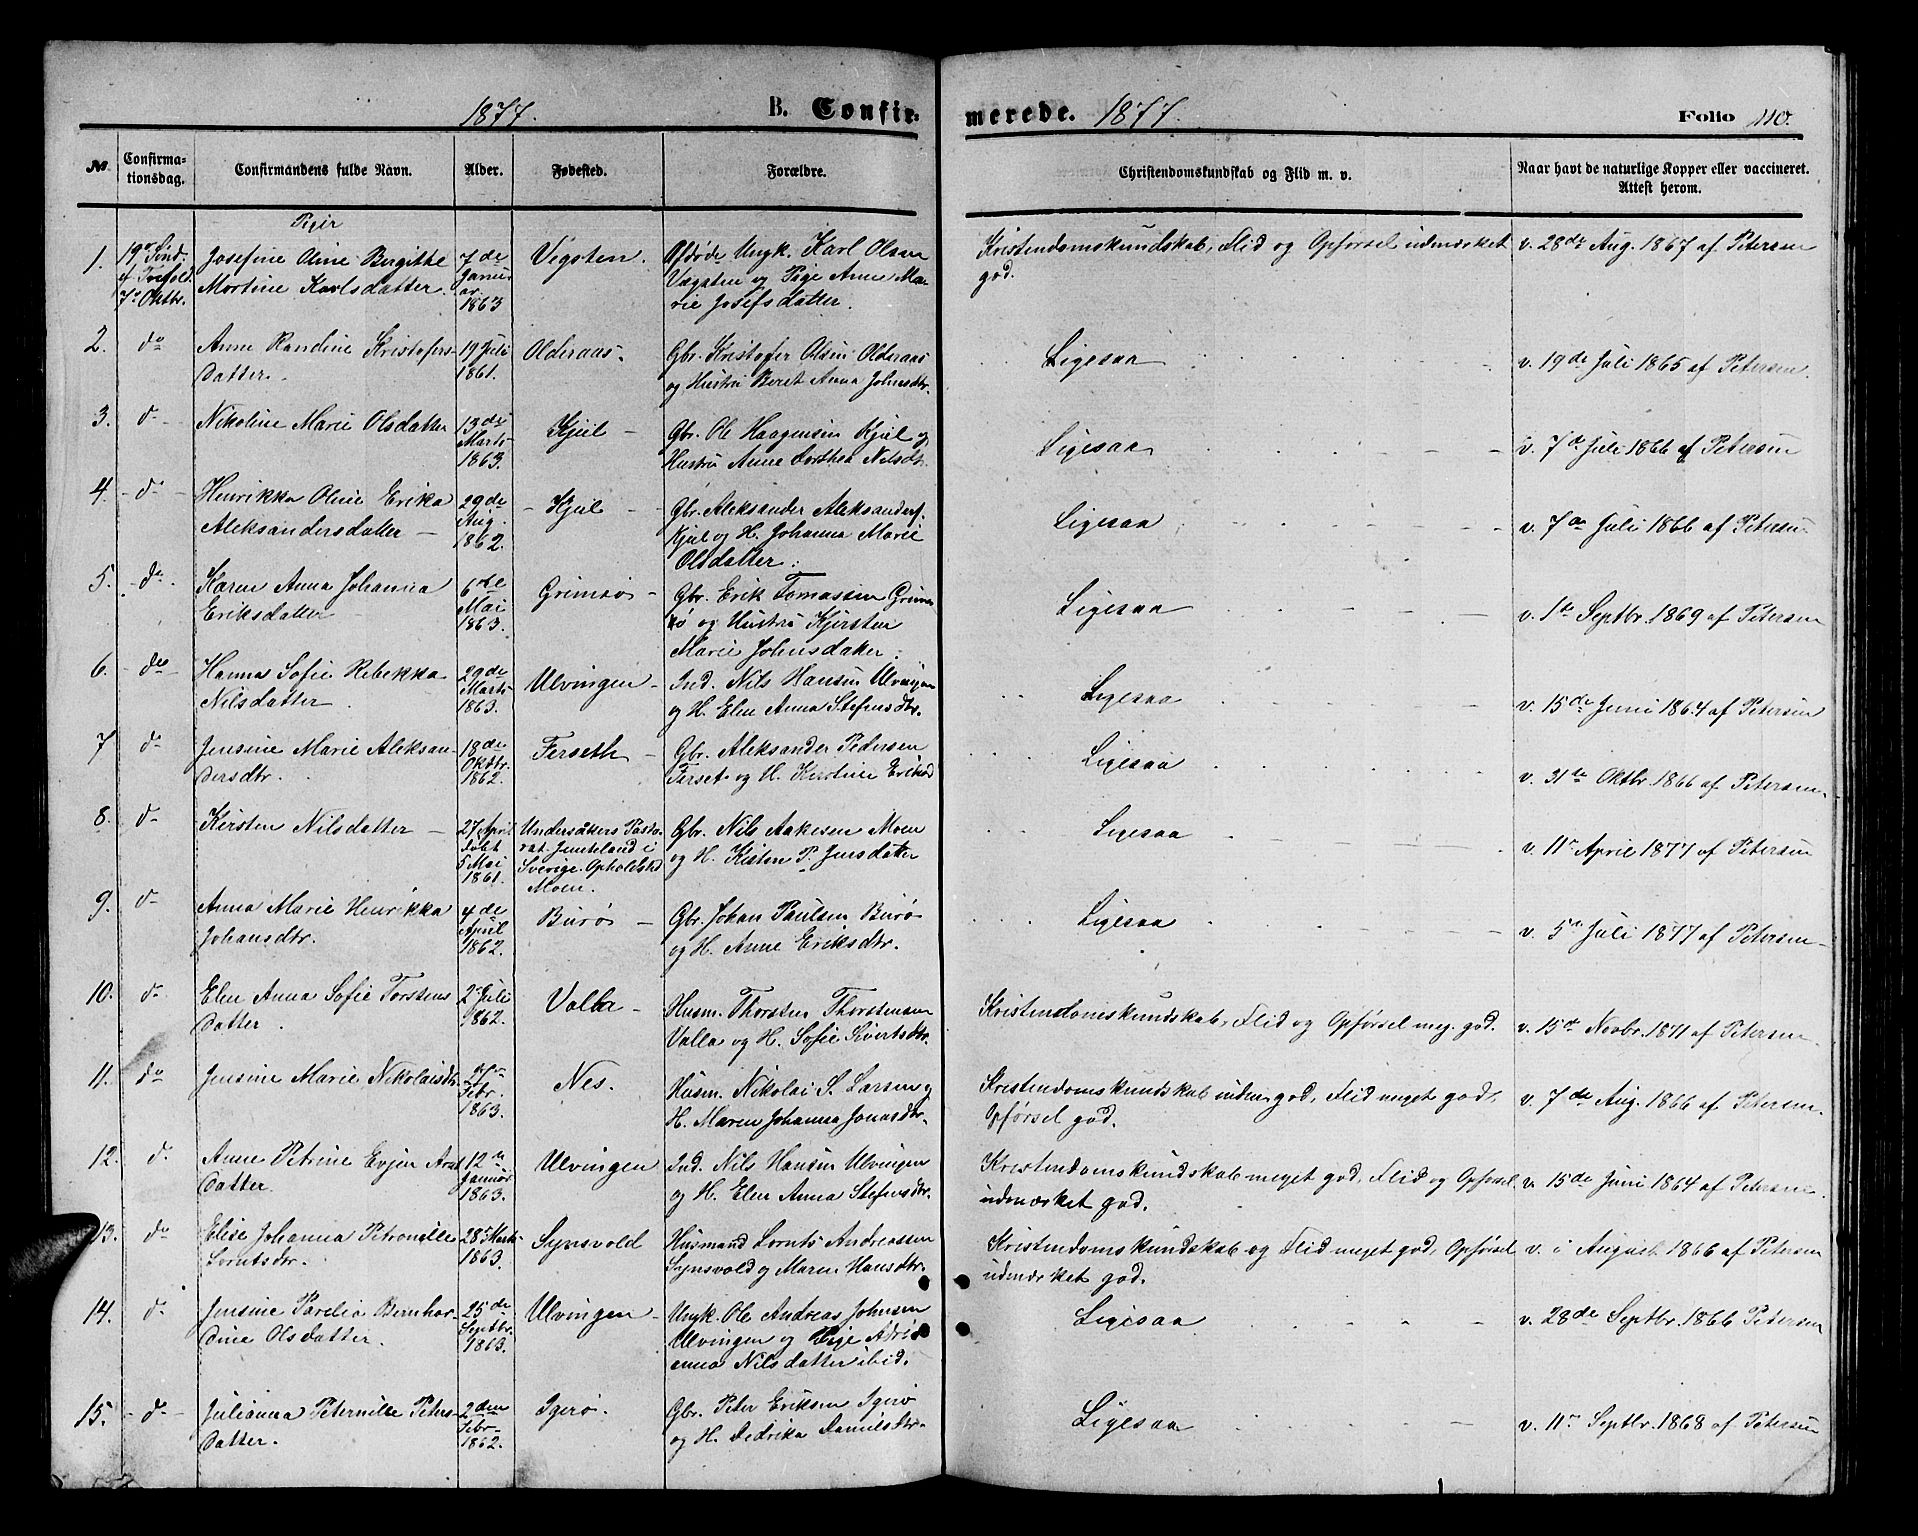 1877. B. Confirmerede. 1877. Folio 110.
№ Confirmationsdag. Confirmandens fulde Navn. Alder. Fødested. Forældre. Christendomskundskab og Flid m. v. Naar havt de naturlige Kopper eller vaccineret. Attest herom.
Piger
1. 19de Sønd. e. Trefold. 7de Oktbr. Josefine Oline Bergithe Martine Karlsdatter. 7de Januar 1863 Vigoten. Afdøde Ungk. Karl Olsen Vægaten og Pige Anne Marie Josefsdatter. Kristendomskundskab, Flid og Opførsel udmærket god. v. 28de Aug. 1867 af Petersen
2. do Anne Randine Kristofersdatter. 19 Juli 1861. Olderaas. Gbr. Kristofer Olsen Olderaas og Hustru Beret Anna Johnsdtr. Ligesaa v. 19de Juli 1865 af Petersen.
3. do Nikoline Marie Olsdatter 13de Marts 1863. Kjul Gbr. Ole Haagensen Kjul og Hustru Anne Dorthea Nilsdt. Ligesaa v. 7de Juli 1866 af Petersen
4. do Henrikka Oline Erika Aleksandersdatter 29de Aug. 1862. Kjul Gbr. Aleksander Aleksanders. Kjul og H. Johanna Marie Olsdatter. Ligesaa v. 7de Juli 1866 af Petersen
5. do Karen Anna Johanna Eriksdatter 6te Mai 1863. Grimsø Gbr. Erik Tomassen Grimsø og Hustru Kjersten Marie Johnsdatter. Ligesaa v. 1ste Septbr. 1869 af Petersen
6. do Hanna Sofie Rebekka Nilsdatter. 29de Marts 1863. Ulvingen Ind. Nils Hansen Ulvingen og H. Elen Anna Stefensdtr. Ligesaa v. 15de Juni 1864 af Petersen
7 do Jensine Marie Aleksandersdtr. 18de Oktbr. 1862. Ferseth Gbr. Aleksander Pedersen Ferset og H. Karoline Eriksd Ligesaa v. 31te Oktbr. 1866 af Petersen.
8. do Kirsten Nilsdatter 27 April døbt 5 Mai 1861. Undersåkers Pastorat. Jemteland i Sverige. Opholdsted Moen. Gbr. Nils Aakesen Moen og H. Kisten P. Jensdatter Ligesaa v. 11te April 1877 af Petersen
9. do Anna Marie Henrikka Johansdtr. 4de April 1862. Burø Gbr. Johan Paulsen Burø og H. Anne Eriksdtr. Ligesaa v. 5te Juli 1877 af Petersen
10. do Elen Anna Sofie Torstensdatter. 2 Juli 1862. Valla Husm. Thorsten Thorstensen Valla og H. Sofie Sivertsdtr. Kristendomskundskab, Flid og Opførsel meg. god. v. 15de Novbr. 1871 af Petersen.
11. do Jensine Marie Nikolaisdtr. Febr. 1863. Nes. Husm. Nikolai S. Larsen og H. Maren Johanna Jonasdtr. Kristendomskundskab uden god, Flid meget god, Opførsel god. v. 7de Aug. 1866 af Petersen.
12. do Anne Petrine Evjen Arntdatter. 12te Januar 1863. Ulvingen Ind. Nils Hansen Ulvingen og H. Elen Anna Stefensdtr. Kristendomskundskab meget god. Flid og Opførsel udmærket god. v. 15de Juni 1864 af Petersen.
13. do Elise Johanna Petronelle Lorntsdtr. 28de Marts 1863. Synsvold Husmand Lornts Andreassen Synsvold og Maren Hansdtr. Kristendomskundskab og Flid meget god, Opførsel udmærket god. v. i August 1866 af Petersen
14. do Jensine Parelia Bernhardine Olsdatter. 25de Septbr. 1863. Ulvingen Ungk. Ole Andreas Johnsen Ulvingen og Pige Adrianna Nilsdatter ibid. Ligesaa v. 28de Septbr. 1866 Petersen
15. do Julianna Peternille Petersdatter. 2den Febr. 1862. Igerø. Gbr. Peter Eriksen Igerø og H. Fredrika Danielsdtr. Ligesaa v. 11te Septbr. 1868 af Petersen